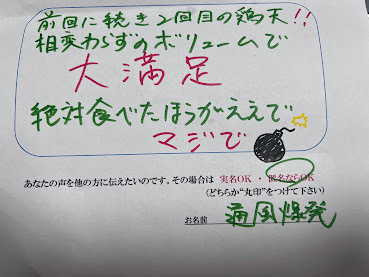 前回に続き2回目の鶏天!!
相変わらずのボリュームで
大満足
絶対食べたほうがええで
マジで
あなたの声を他の方に伝えたいのです。その場合は 実名OK ・ 匿名ならOK
(どちらか"丸印"をつけて下さい)
お名前 痛風爆発